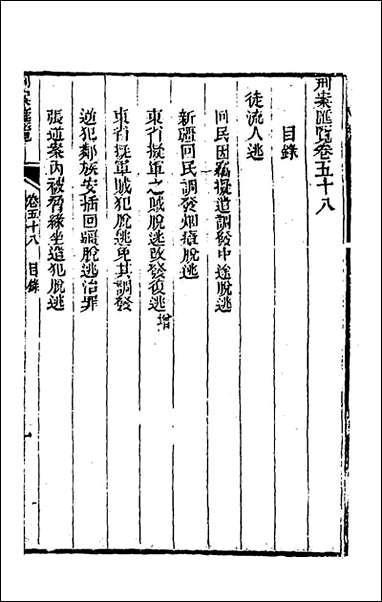 刑案匯覽卷五十八
目錄
徒流人逃
回民因竊擬遣調發中途脫逃
新疆回民調發烟瘴脫逃
東省擬軍之賊脫逃改發復逃增
東省擬軍賊犯脫逃免其調發
逆犯鄰族安插回疆脫逃治罪
張逆案內被脅緣坐遣犯脫逃
刑案匯覽
卷五十八 目錄
一